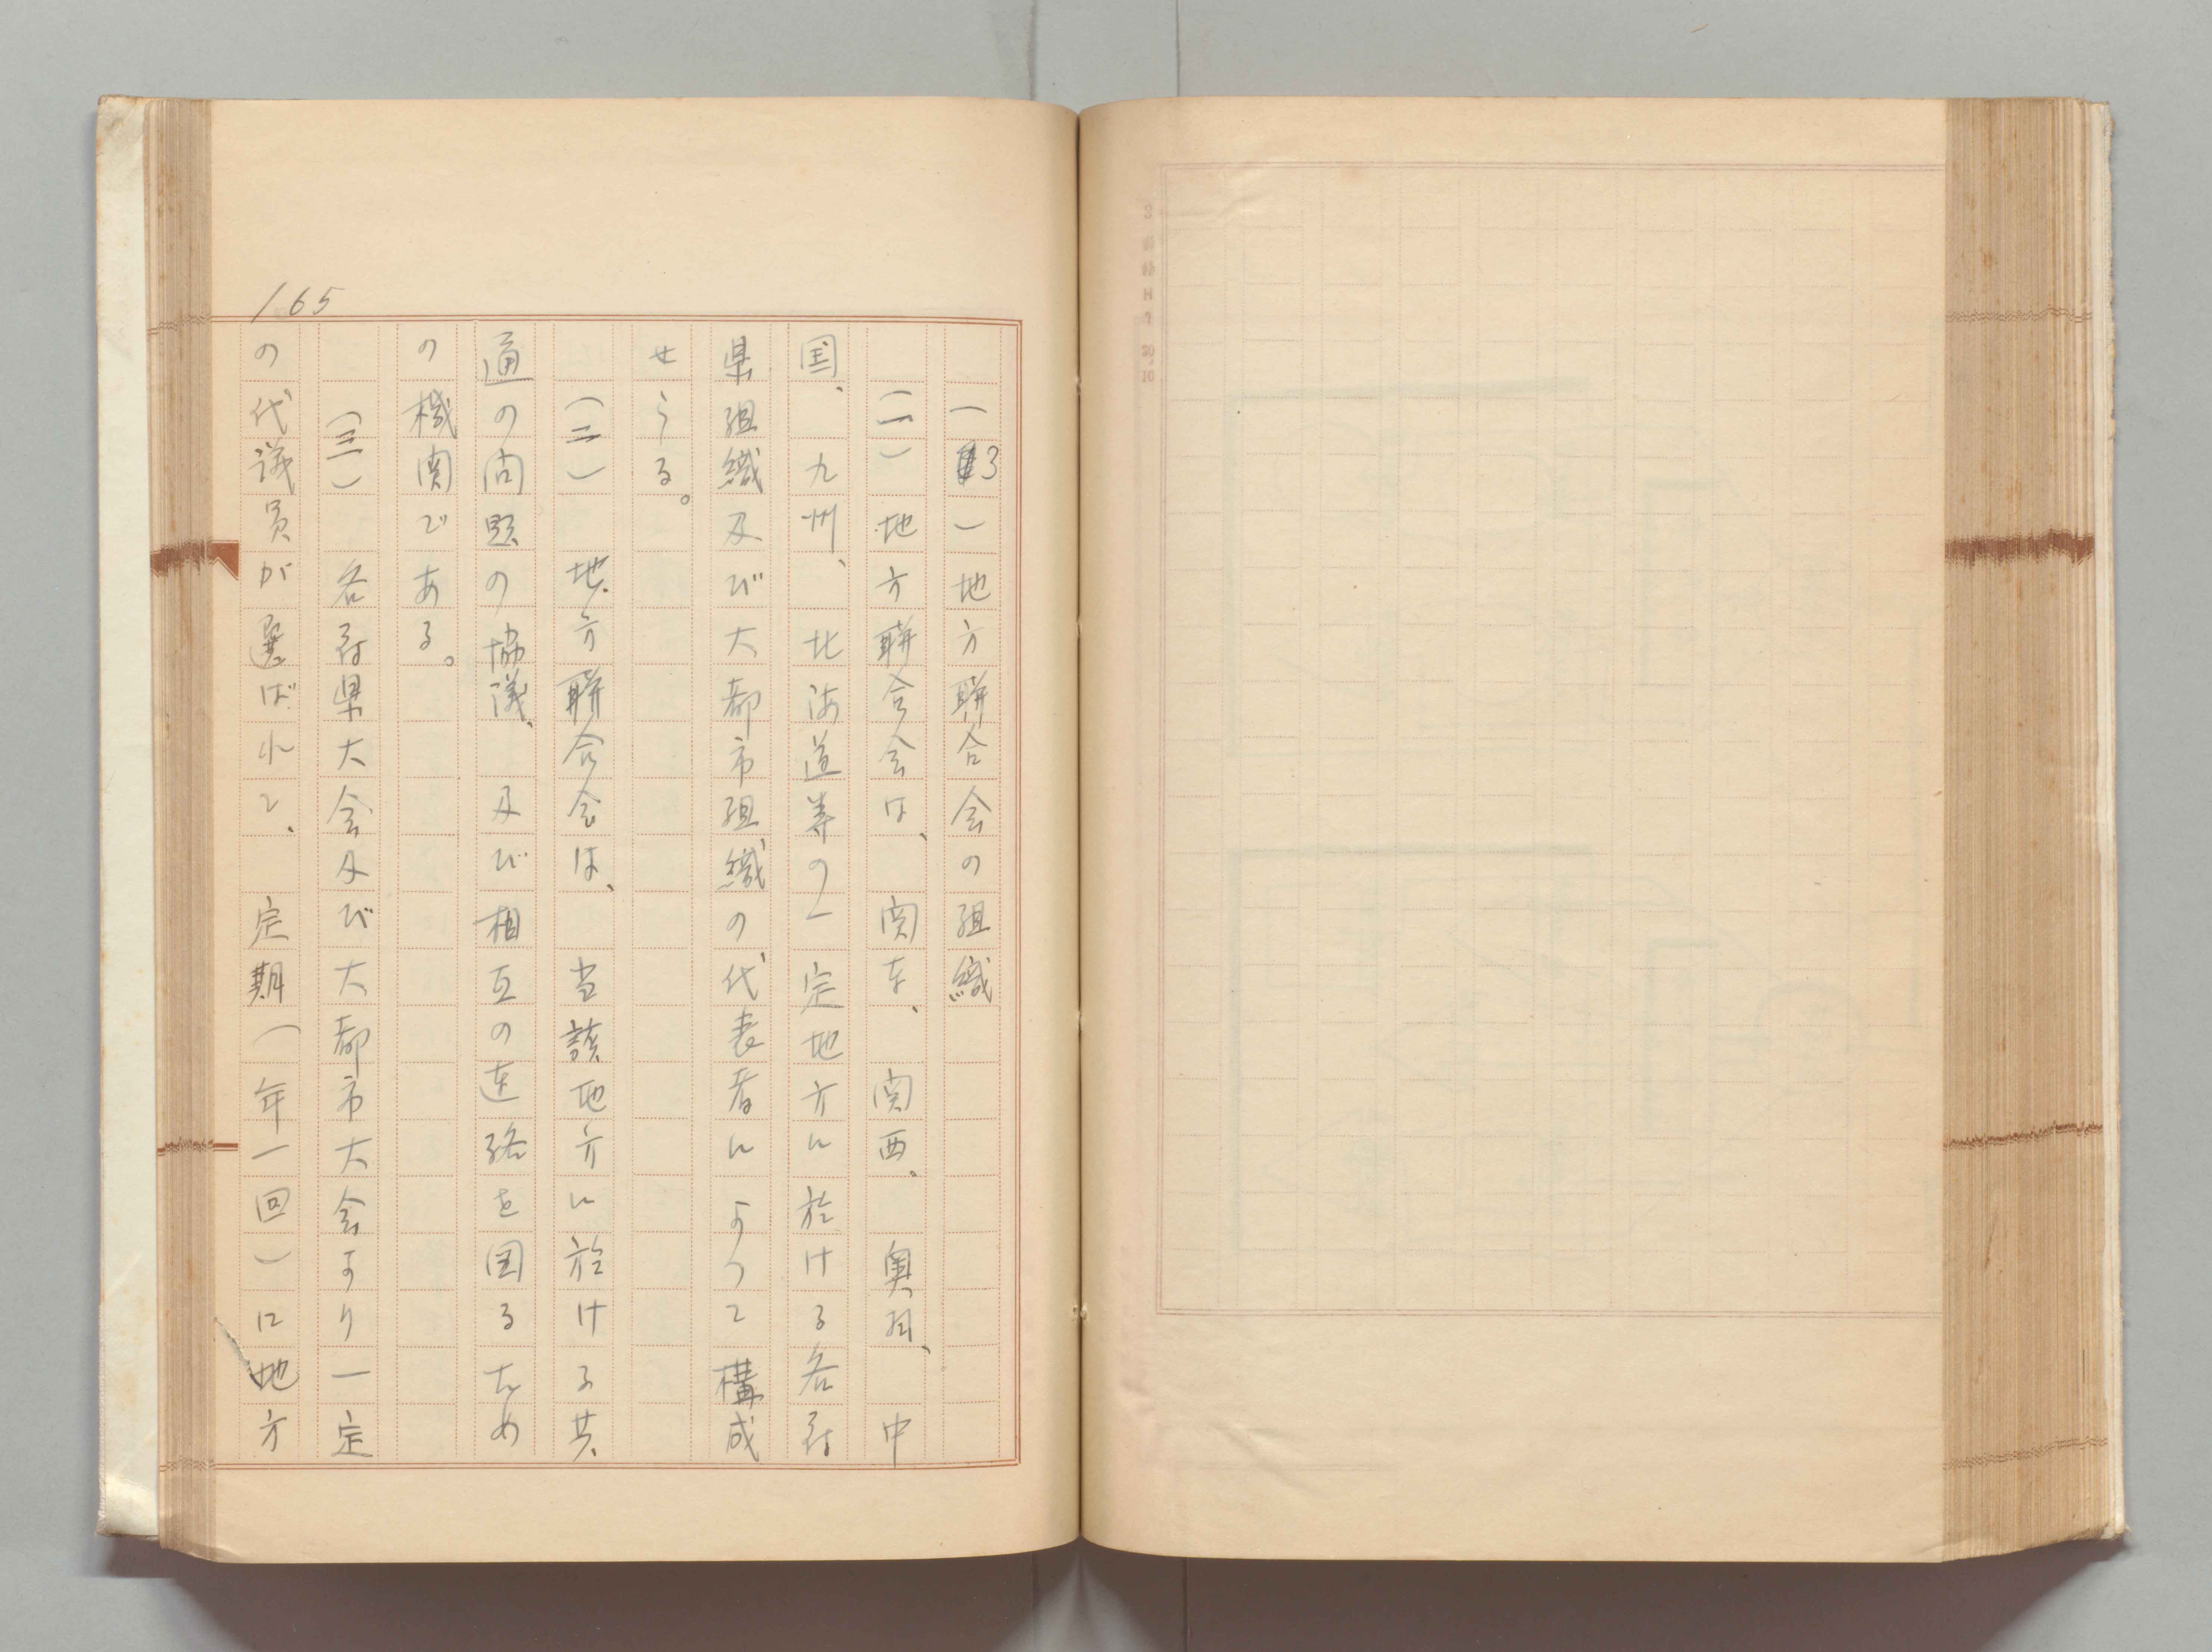 165
(3)地方聯合会の組織
(一)地方聯合会は、関東、関西、奥羽、中
国、九州、北海道等の一定地方に於ける各府
県組織及び大都市組織の代表者によつて構成
せらる。
(二)地方聯合会は、当該地方に於ける共
通の問題の協議、及び相互の連絡を図るため
の機関である。
(三)各府県大会及び大都市大会より一定
の代議員が選ばれて、定期(年一回)に地方